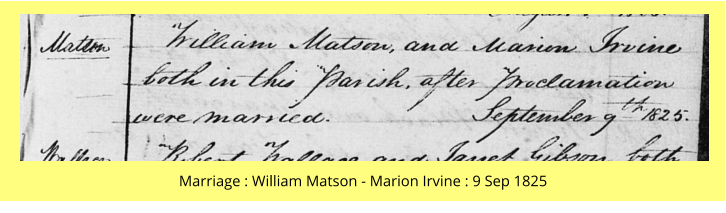 Matson
William Matson, and Marion Irvine
both in this Parish, after Proclamation
were married. September 9th 1825.
Robert Wallace and Janet Gibson both
Marriage : William Matson - Marion Irvine : 9 Sep 1825